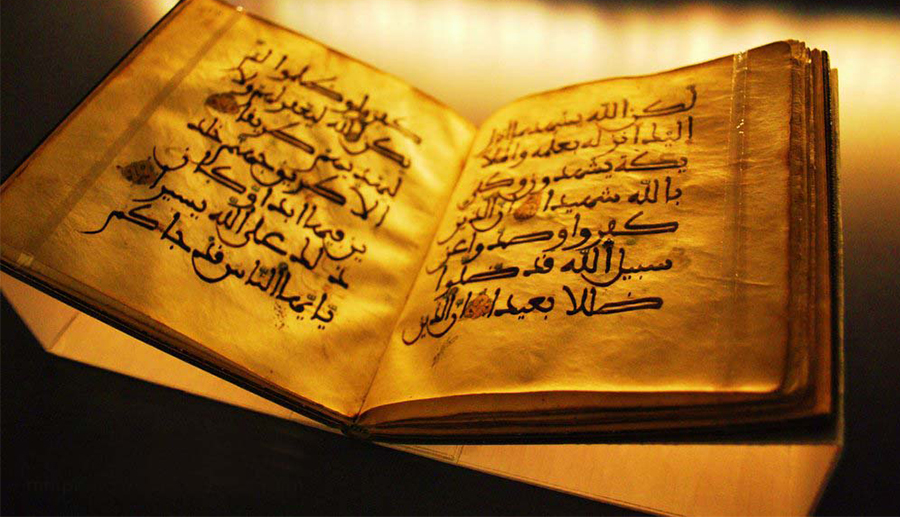 لكن الله يشهد بما انزل
اليك انزله بعلمه والملا
ئكة يشهدون وكفى
بالله شهيدا ان الذين
كفروا وصدوا عن
سبيل الله قد ضلوا
ضللا بعيدا انّ الذين
كفروا وظلموا لم
يكن الله ليغفر لهم ولا
ليهديهم طريقا
الا طريق جهنم خلد
ين فيها ابدا وكان
ذلك على الله يسيرا
يايّها النّاس قد جاكم